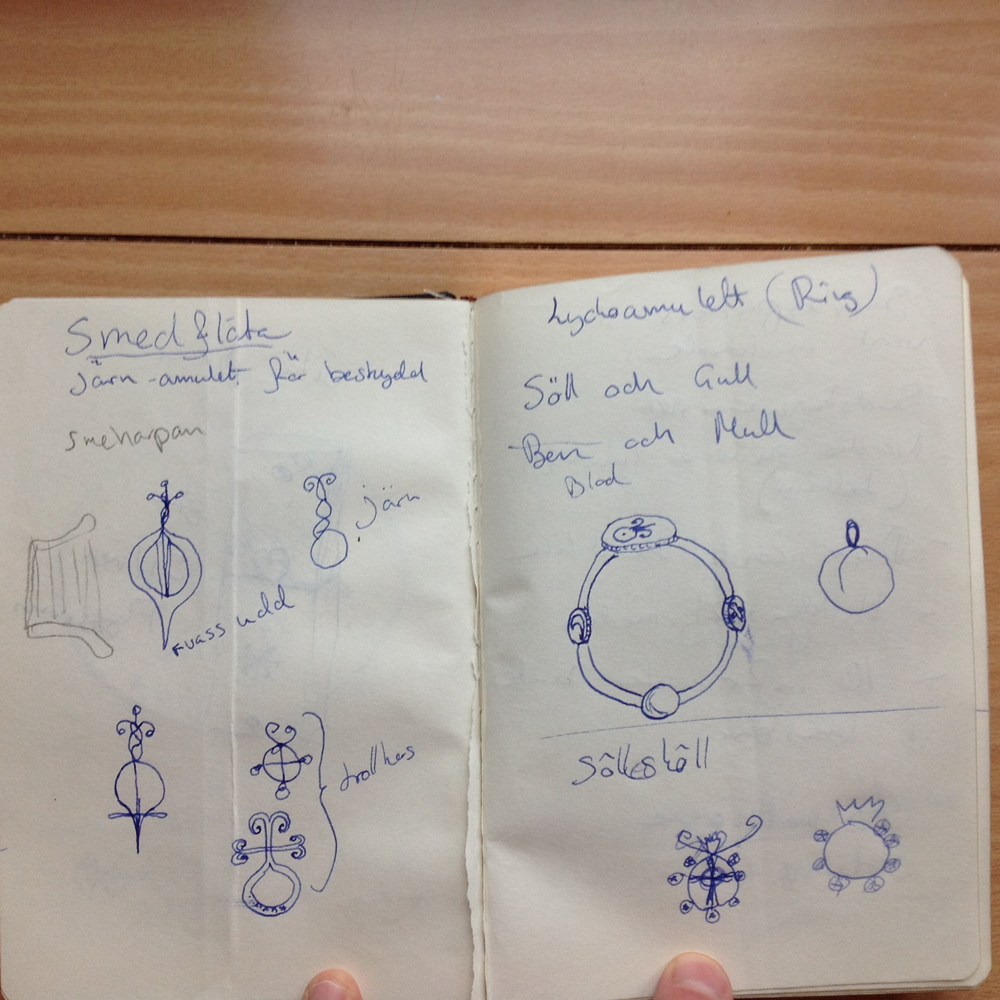 Smedfläta
järn-amulet för beskydd
smeharpan
järn
kvass udd
trollkors
Lyckoamulett (Ring)
Söll och Gull
Ben och Mull
Blod